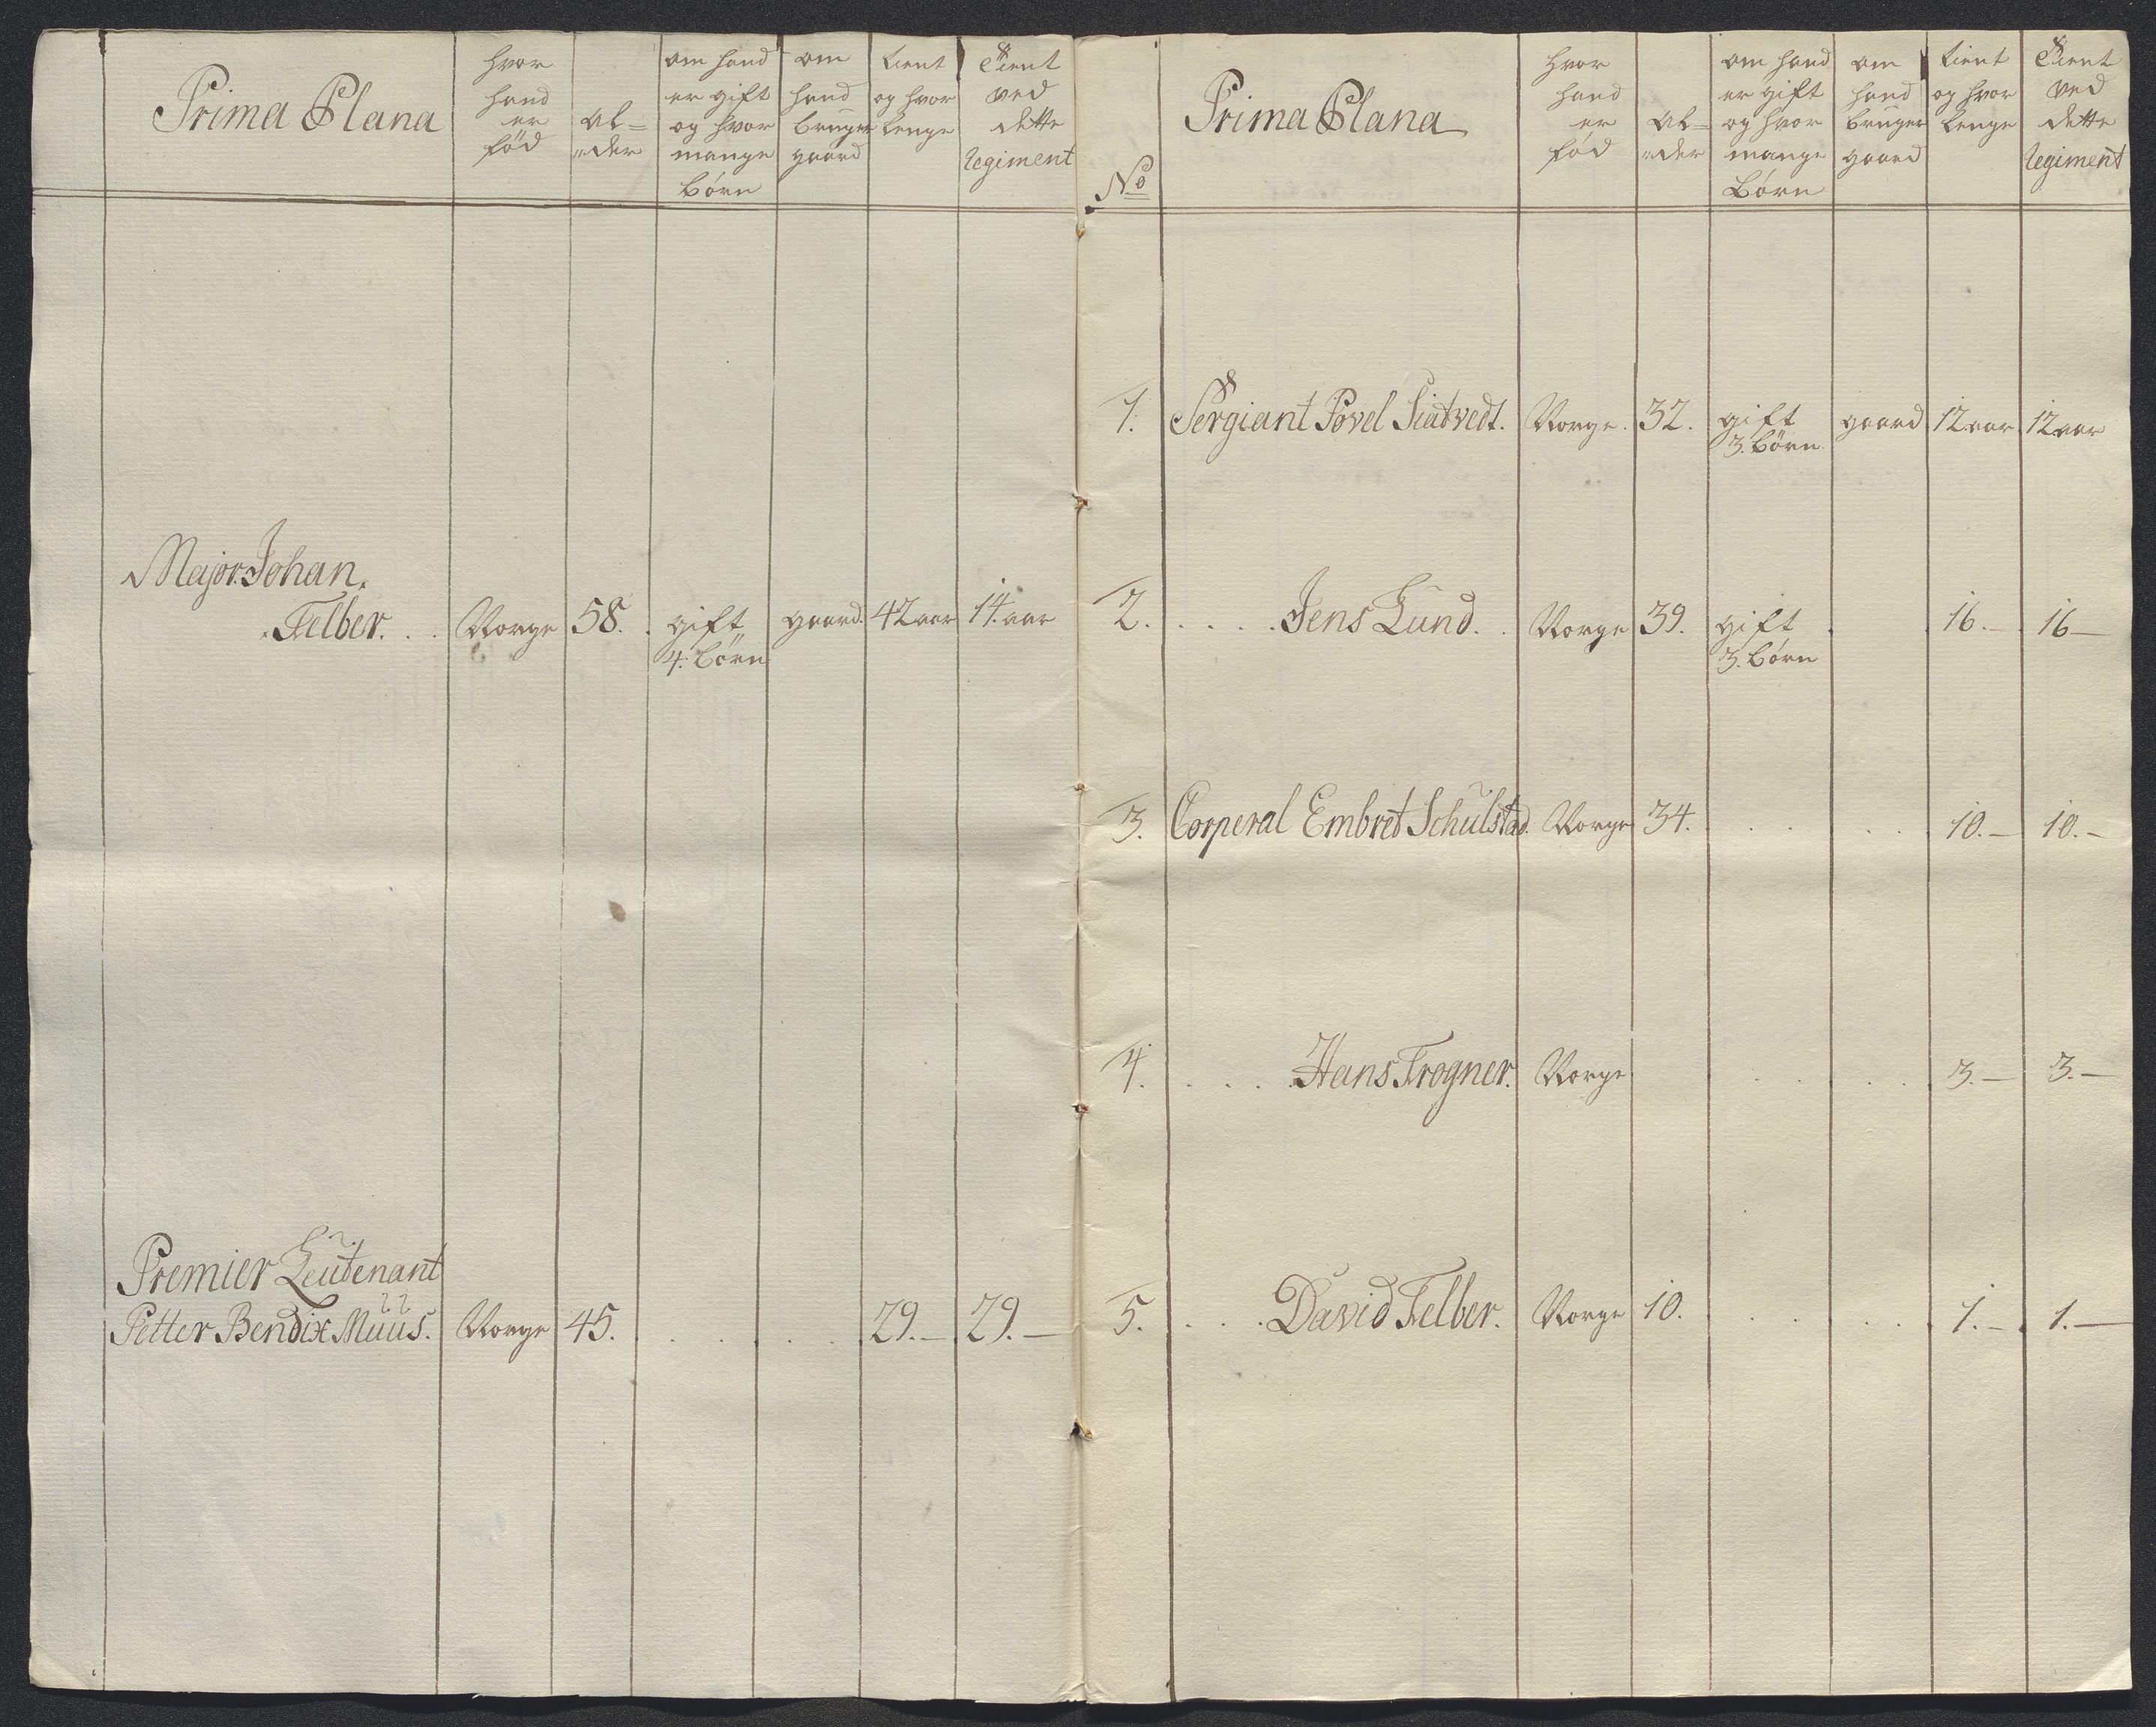 Prima Plana
hvor
hand
er
fød
Al=
"der
om hand
er gift
og hvor
mange
børn
om
hand
bruger
gaard
tient
og hvor
lenge
Tient
ved
dette
Regiment
Major Johan
Felber. . . Norge 58. . gift gaard. 42 aar 14. aar
4. børn
Premier Leutenant
Petter Bendix Muus. Norge 45. . . . . . 29.— 29.—
No
Prima Plana
hvor
hand
er
fød
Al=
"der
om hand
er gift
og hvor
mange
Børn
om
hand
bruger
gaard
tient
og hvor
lenge
Tient
ved
dette
Regiment
1. Sergiant Povel Siatvedt. Norge. 32. gift gaard 12 aar 12 aar
3. børn
2. . . . . Jens Lund. . Norge 39. gift . 16.— 16—
3. børn
3. Corperal Embret Schulstad. Norge 34. . . . . 10.— 10.—
4. . . . . Hans Trogner. Norge . . . . 3.— 3.—
5. . . . . David Felber. Norge 10. . . . . 1.— 1.—